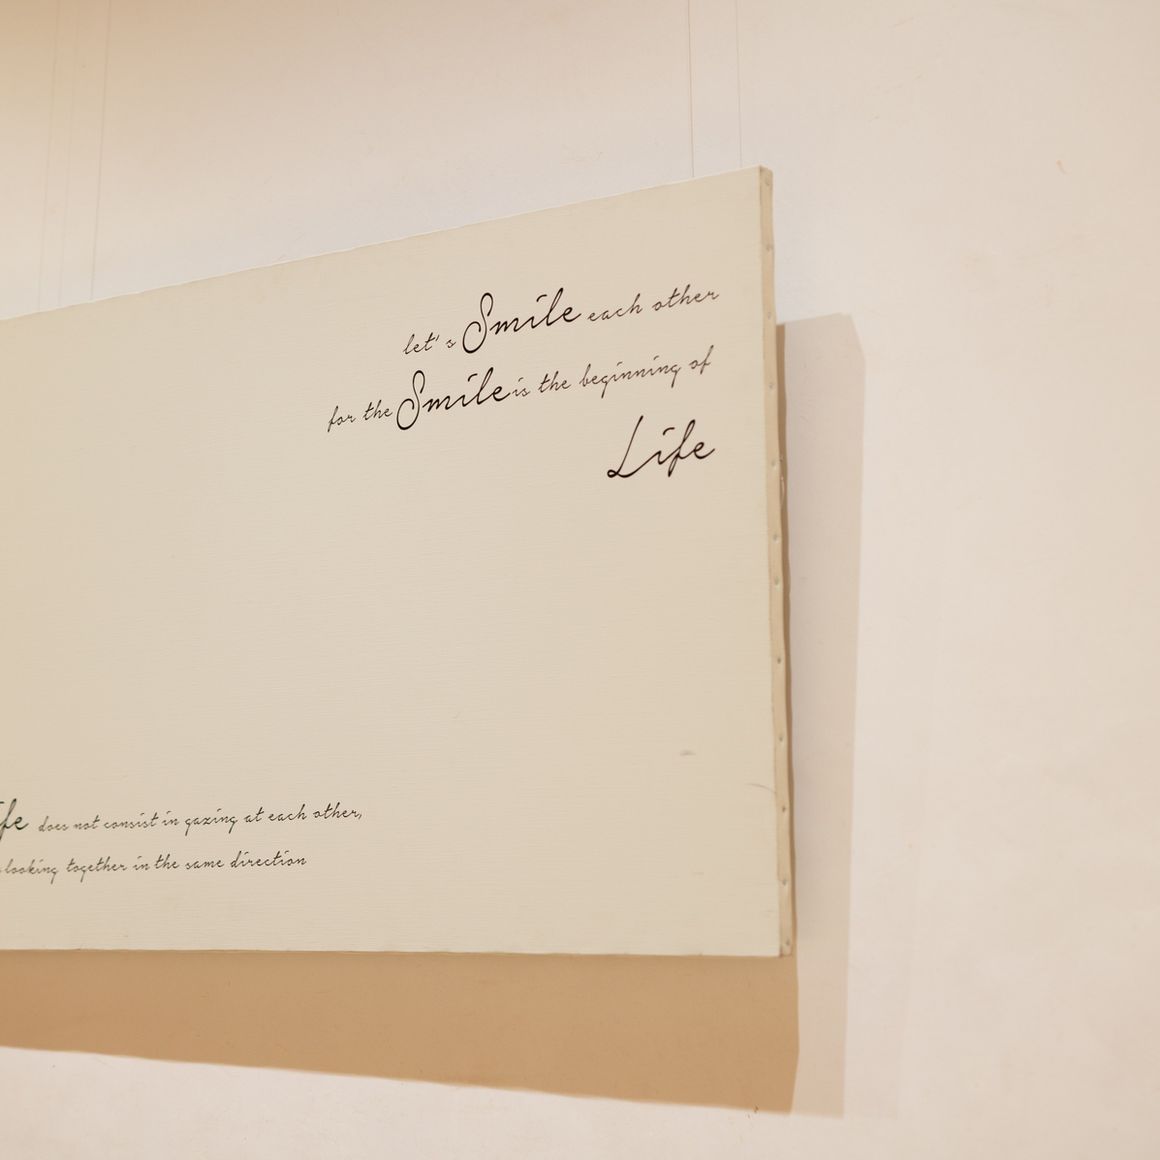 let's Smile each other
for the Smile is the beginning of
Life
does not consist in gazing at each other,
looking together in the same direction